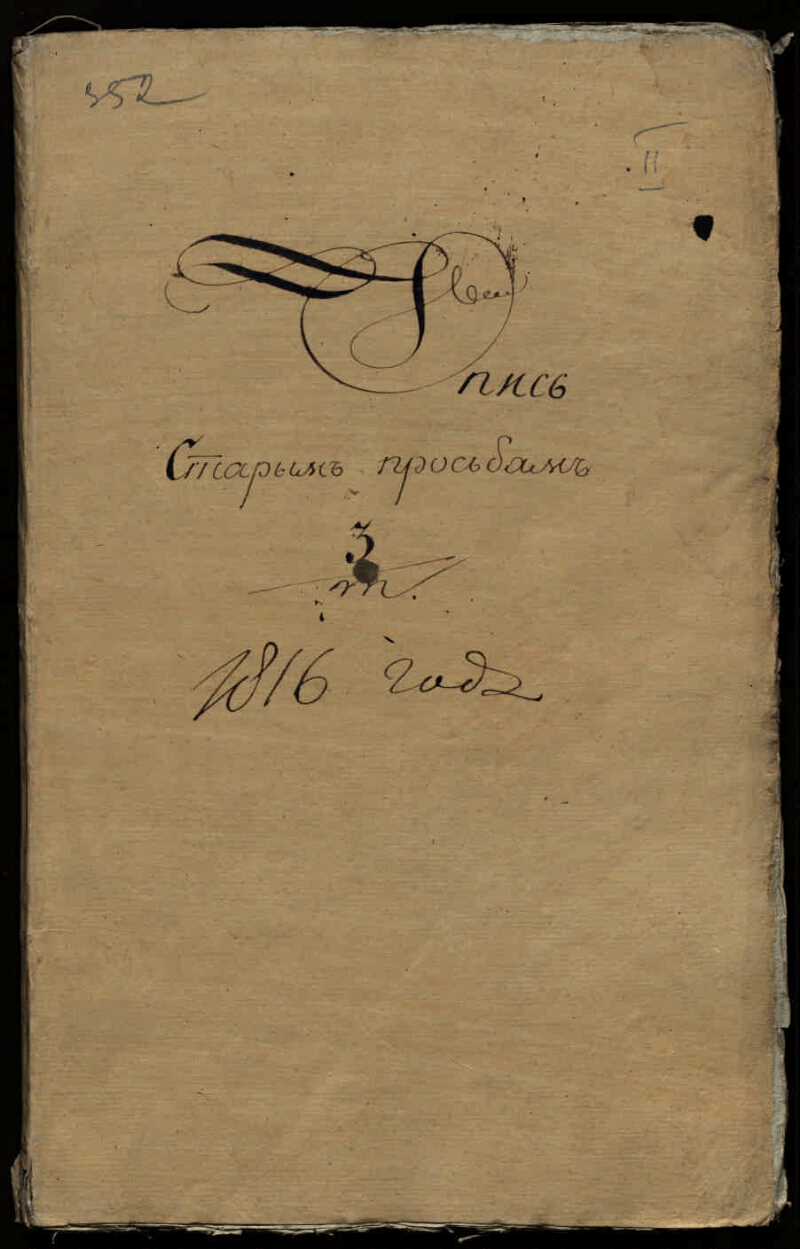 352
II
Опись
Старымъ просьбамъ
3
т.
1816 годъ